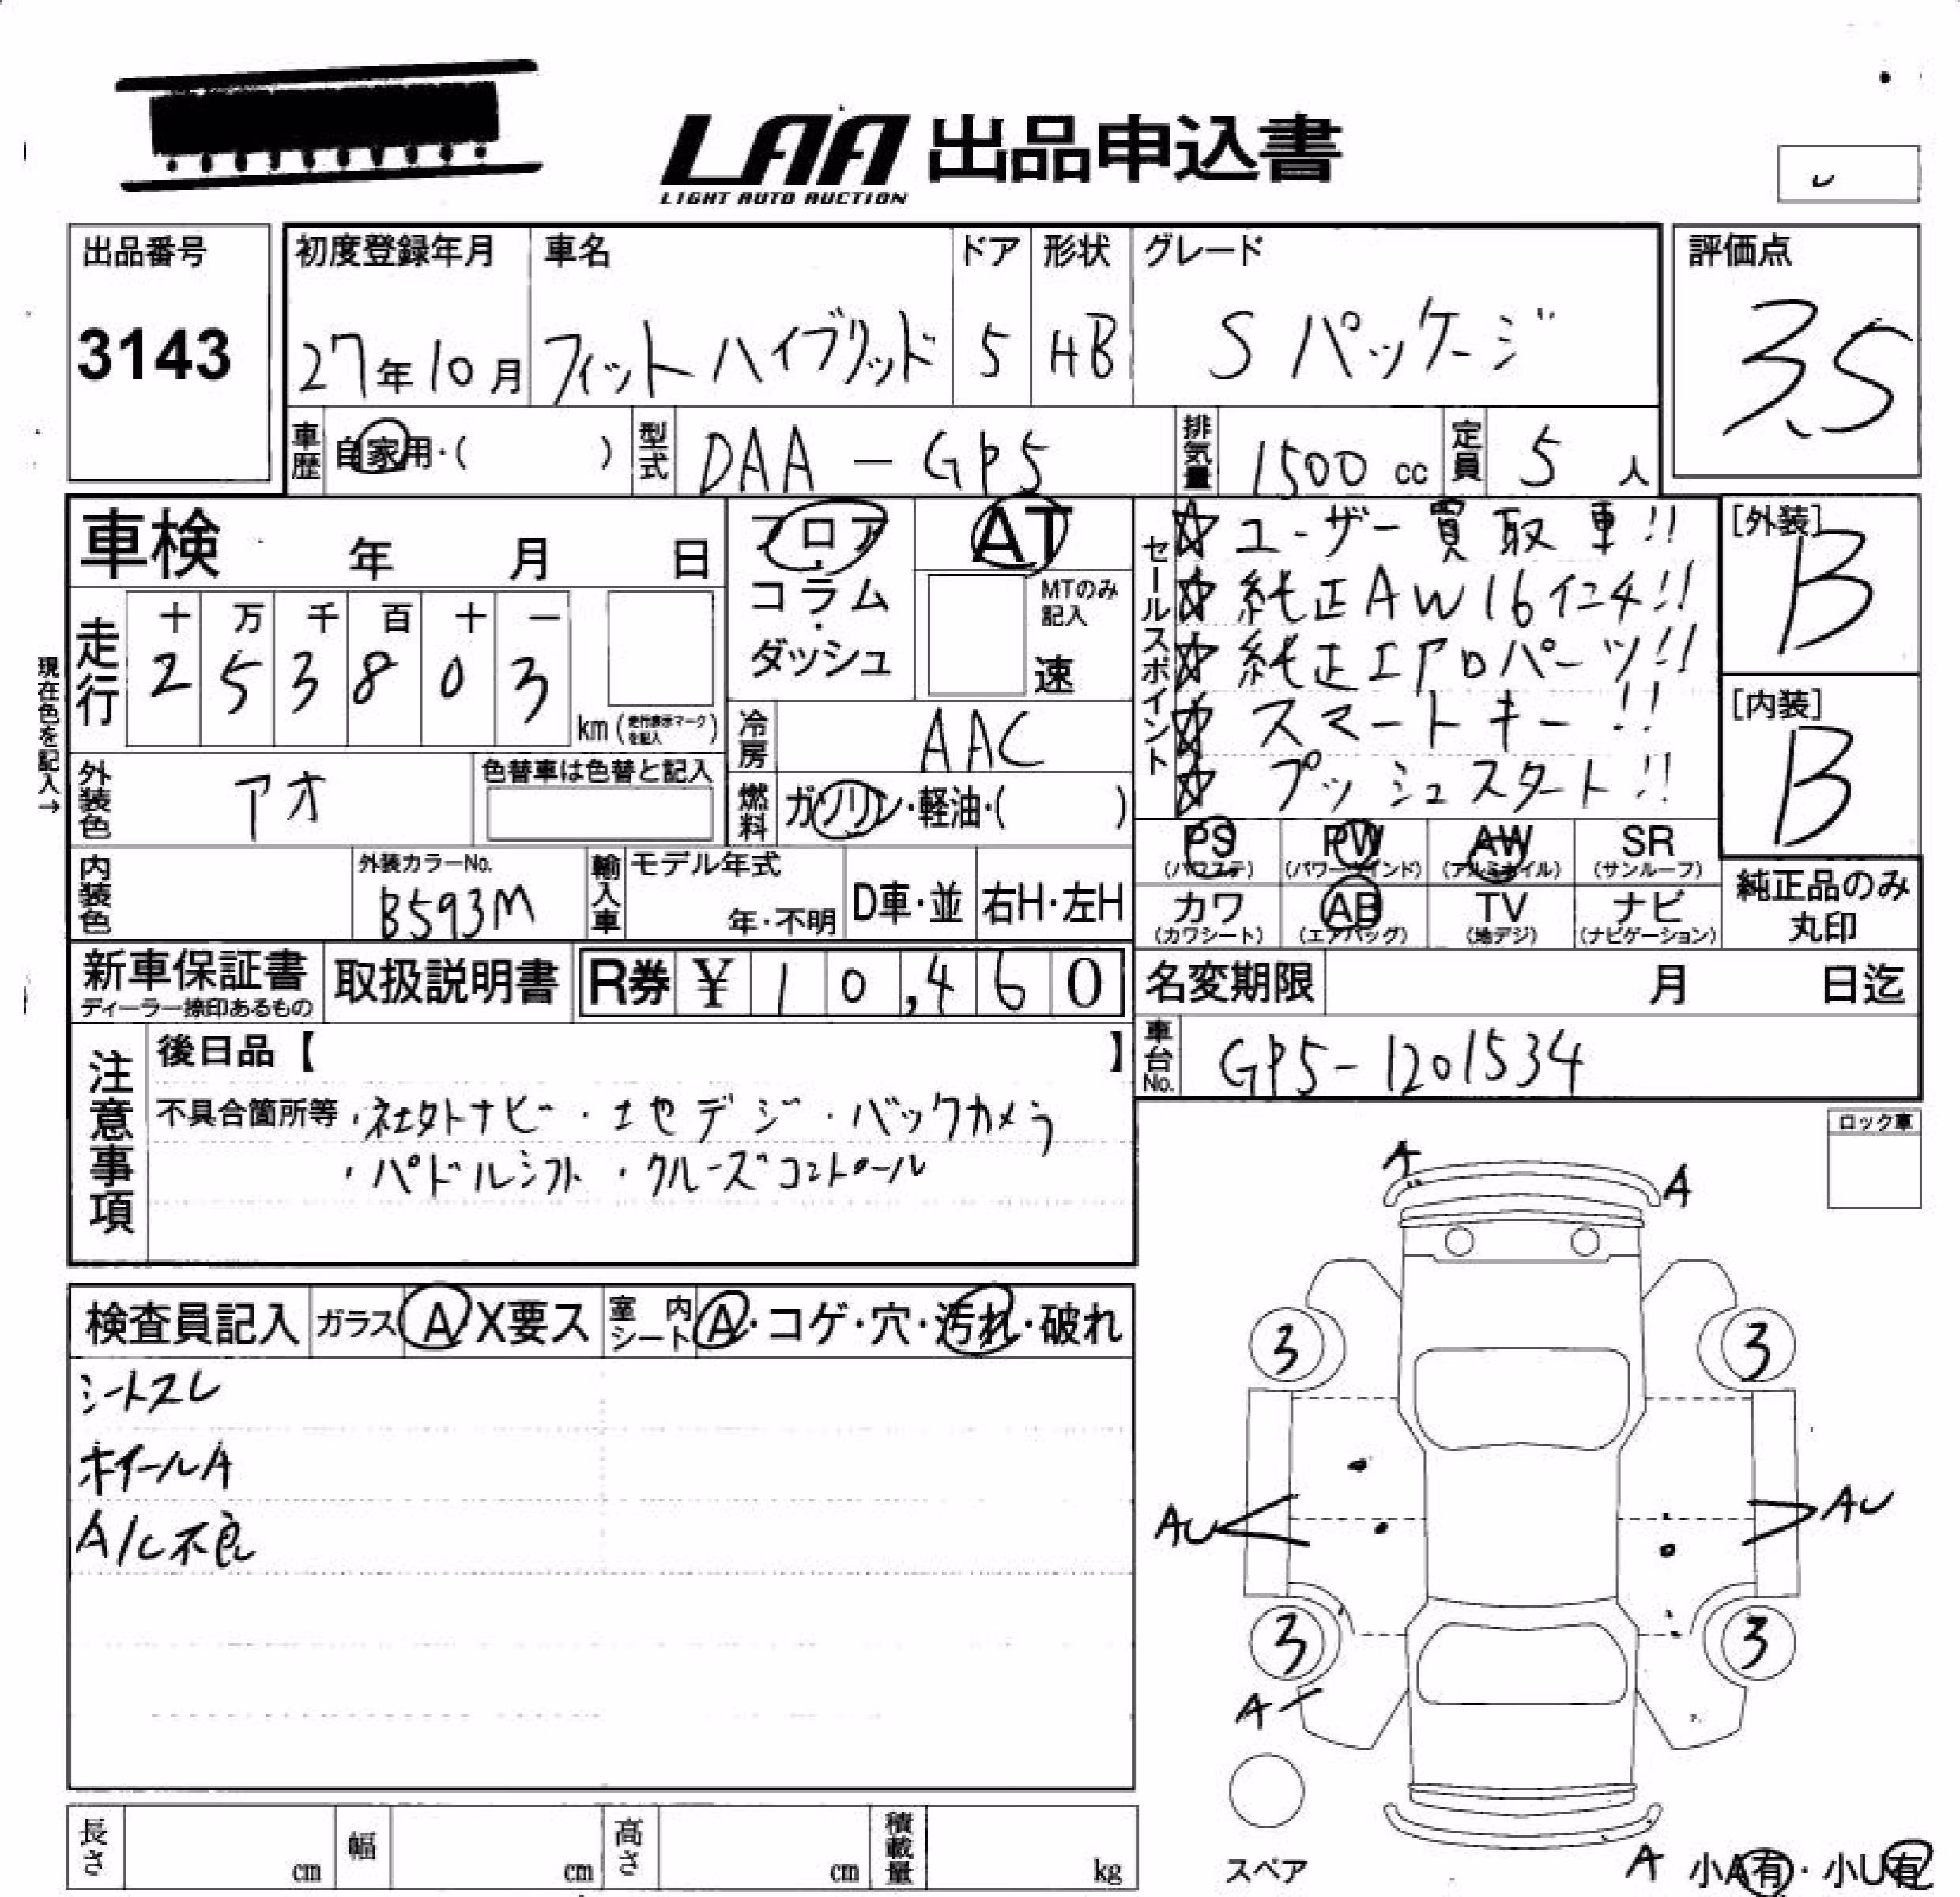 LAA 出品申込書
LIGHT AUTO AUCTION
出品番号
3143
初度登録年月
27年10月
車名
フィットハイブリッド
ドア
5
形状
HB
グレード
Sパッケージ
評価点
3.5
車歴 自家用・( )
型式 DAA-GP5
排気量 1500cc
定員 5人
車検 年 月 日
フロア・コラム・ダッシュ
AT
MTのみ記入
速
現在色を記入→
走行
十 万 千 百 十 一
2 5 3 8 0 3
km(走行表示マークを記入)
冷房 AAC
外装色 アオ
色替車は色替と記入
燃料 ガソリン・軽油・( )
セールスポイント
☆ユーザー買取車!!
☆純正AW16インチ!!
☆純正エアロパーツ!!
☆スマートキー!!
☆プッシュスタート!!
[外装]
B
[内装]
B
内装色
外装カラーNo.
B593M
輸入車 モデル年式
年・不明
D車・並
右H・左H
PS
(パワステ)
PW
(パワーウインド)
AW
(アルミホイル)
SR
(サンルーフ)
カワ
(カワシート)
AB
(エアバッグ)
TV
(地デジ)
ナビ
(ナビゲーション)
純正品のみ
丸印
新車保証書
ディーラー捺印あるもの
取扱説明書
R券 ¥ 10,460
名変期限 月 日迄
車台No. GP5-1201534
注意事項
後日品【 】
不具合箇所等・社外ナビ・地デジ・バックカメラ
・パドルシフト・クルーズコントロール
ロック車
検査員記入
ガラス A X要ス
室内シート A・コゲ・穴・汚れ・破れ
シートスレ
ホイールA
A/C不良
A
A
3
3
AU
AU
3
3
A
スペア
A 小A有・小U有
長さ cm
幅 cm
高さ cm
積載量 kg